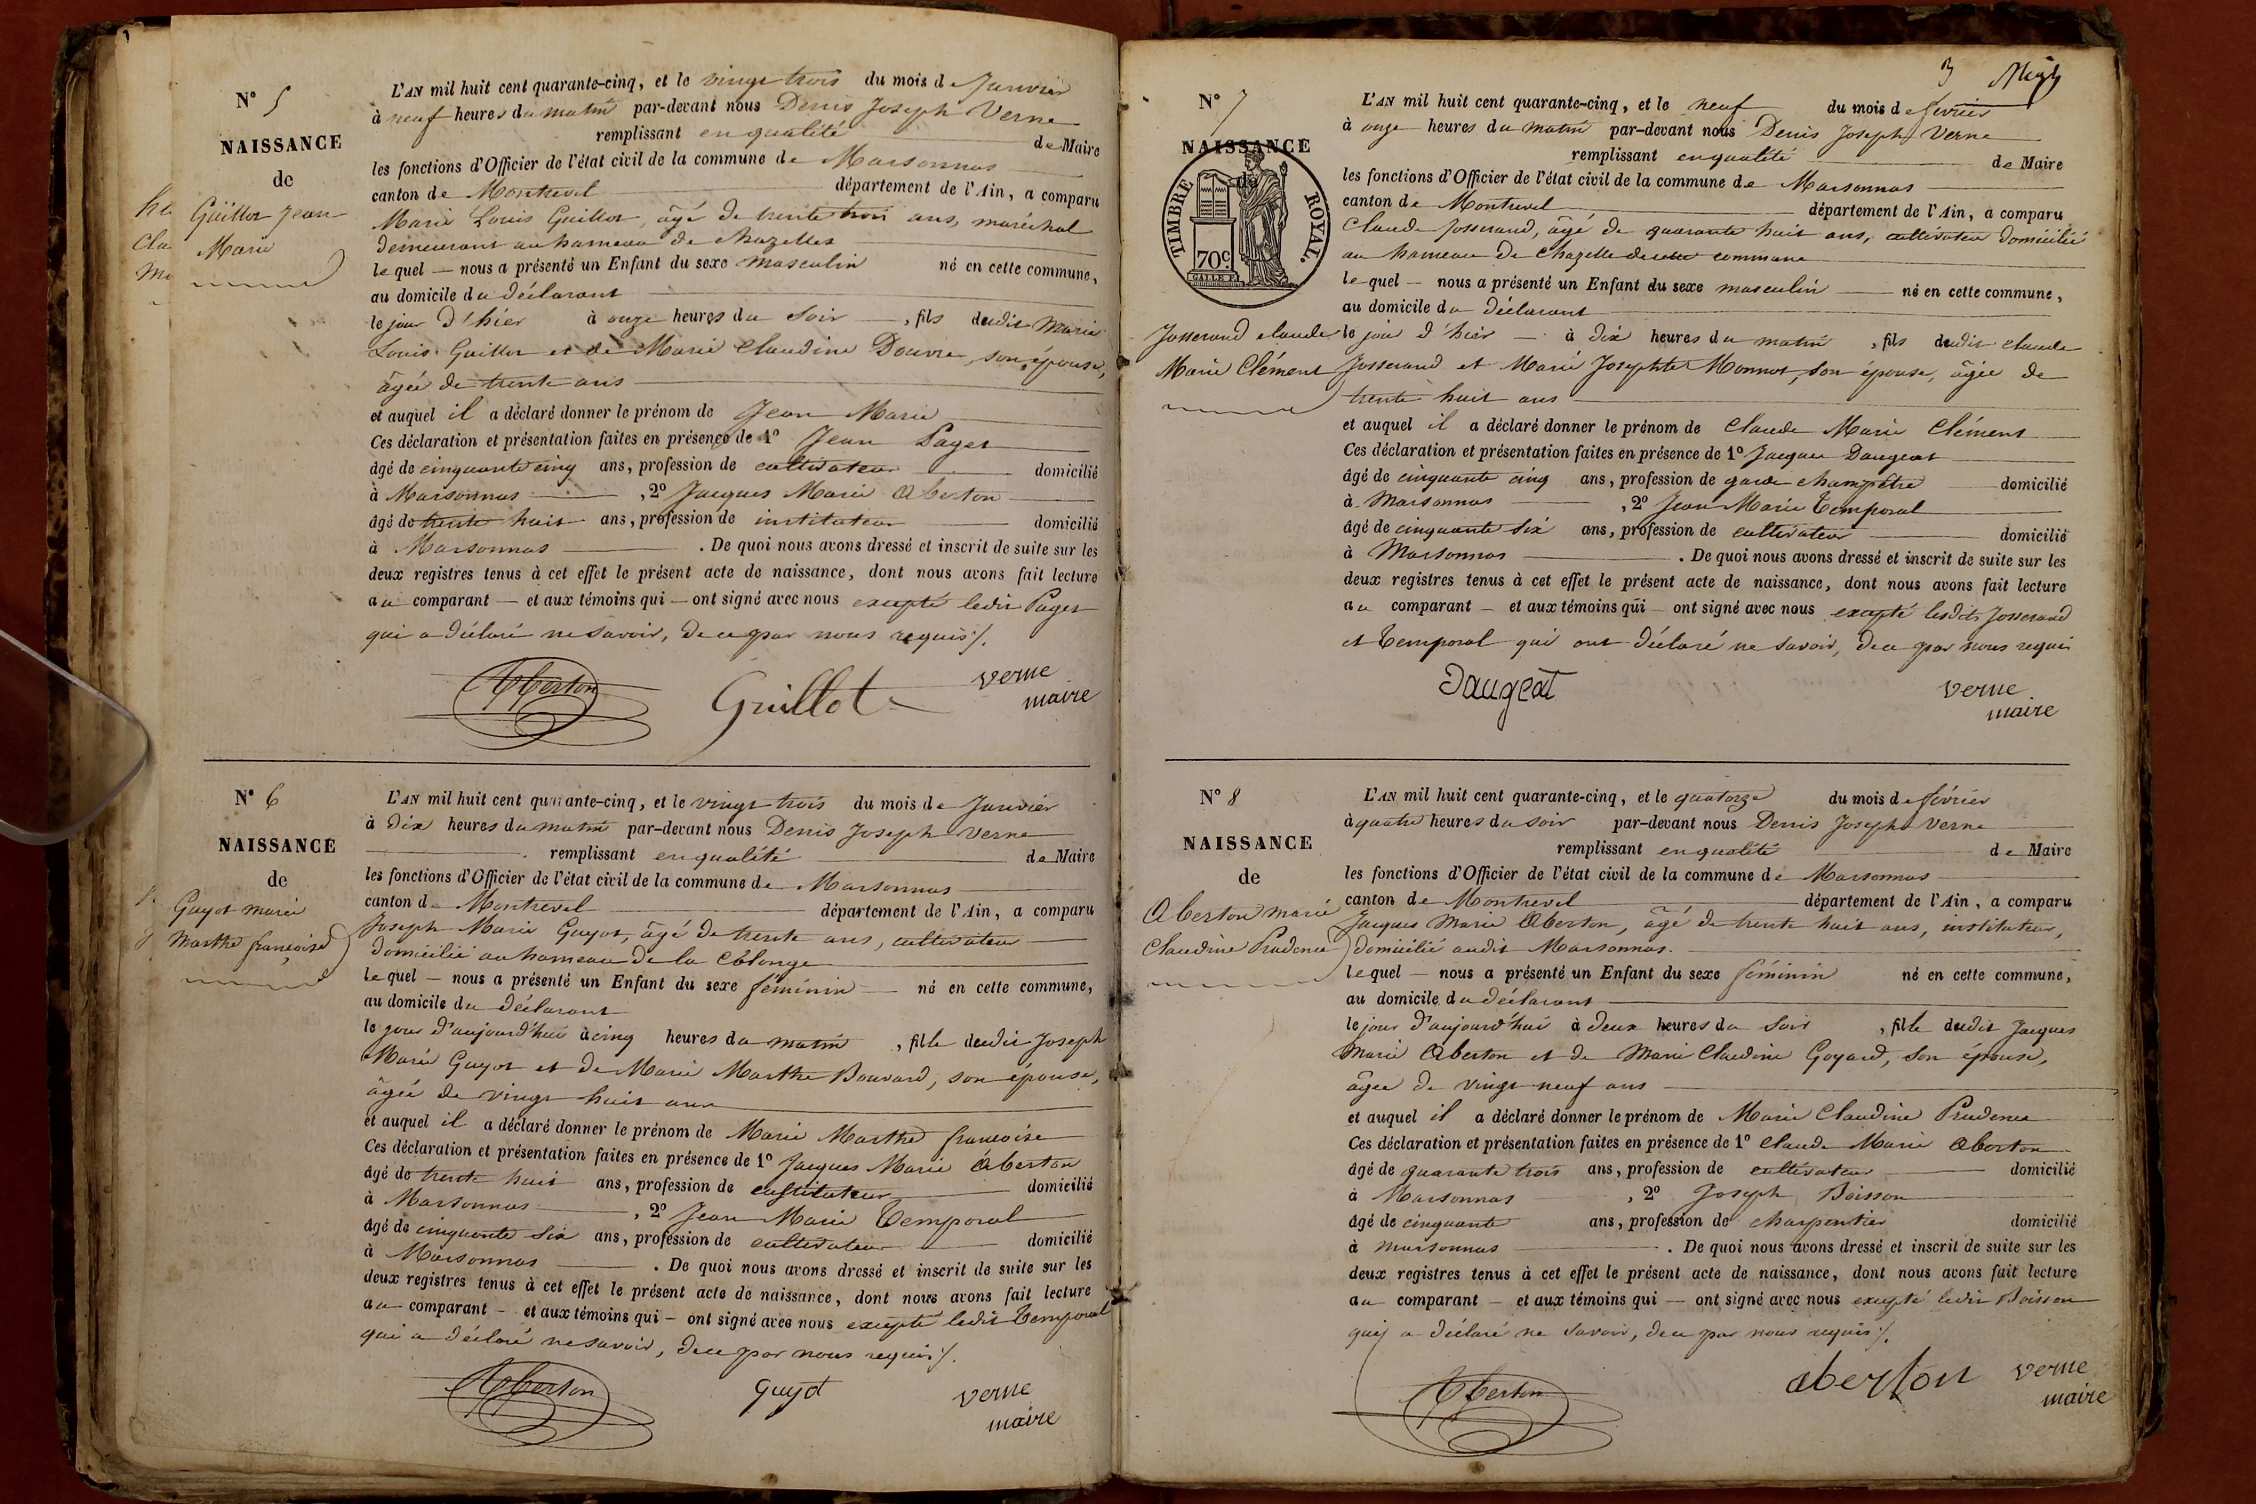 N° 5
NAISSANCE
de
Guillot Jean
Marie
L'AN mil huit cent quarante-cinq, et le vingt trois du mois de Janvier
à neuf heures du matin par-devant nous Denis Joseph Verne
remplissant en qualité de Maire
les fonctions d'Officier de l'état civil de la commune de Marsonnas
canton de Montrevel département de l'Ain, a comparu
Marie Louis Guillot, âgé de trente trois ans, maréchal
demeurant au hameau de Chazelles
lequel nous a présenté un Enfant du sexe masculin né en cette commune,
au domicile du déclarant
le jour d'hier à onze heures du soir, fils dudit Marie
Louis Guillot et de Marie Claudine Douvre, son épouse,
âgée de trente ans
et auquel il a déclaré donner le prénom de Jean Marie
Ces déclaration et présentation faites en présence de 1° Jean Paget
âgé de cinquante cinq ans, profession de cultivateur domicilié
à Marsonnas, 2° Jacques Marie Oberton
âgé de trente huit ans, profession de instituteur domicilié
à Marsonnas. De quoi nous avons dressé et inscrit de suite sur les
deux registres tenus à cet effet le présent acte de naissance, dont nous avons fait lecture
au comparant — et aux témoins qui — ont signé avec nous excepté ledit Paget
qui a déclaré ne savoir, de ce par nous requis ./.
Oberton Guillot verne
maire
N° 6
NAISSANCE
de
Guyot marie
marthe françoise
L'AN mil huit cent quarante-cinq, et le vingt trois du mois de Janvier
à dix heures du matin par-devant nous Denis Joseph Verne
remplissant en qualité de Maire
les fonctions d'Officier de l'état civil de la commune de Marsonnas
canton de Montrevel département de l'Ain, a comparu
Joseph Marie Guyot, âgé de trente ans, cultivateur
domicilié au hameau de la Collonge
lequel — nous a présenté un Enfant du sexe féminin — né en cette commune,
au domicile du déclarant
le jour d'aujourd'hui à cinq heures du matin, fille dudit Joseph
Marie Guyot et de Marie Marthe Bouvard, son épouse,
âgée de vingt huit ans
et auquel il a déclaré donner le prénom de Marie Marthe françoise
Ces déclaration et présentation faites en présence de 1° Jacques Marie Oberton
âgé de trente huit ans, profession de instituteur domicilié
à Marsonnas, 2° Jean Marie Temporal
âgé de cinquante six ans, profession de cultivateur domicilié
à Marsonnas. De quoi nous avons dressé et inscrit de suite sur les
deux registres tenus à cet effet le présent acte de naissance, dont nous avons fait lecture
au comparant — et aux témoins qui — ont signé avec nous excepté ledit Temporal
qui a déclaré ne savoir, de ce par nous requis ./.
Oberton guyot verne
maire
3
N° 7
NAISSANCE
de
TIMBRE ROYAL.
70c
Josserand claude
Marie Clément
L'AN mil huit cent quarante-cinq, et le neuf du mois de février
à onze heures du matin par-devant nous Denis Joseph Verne
remplissant en qualité de Maire
les fonctions d'Officier de l'état civil de la commune de Marsonnas
canton de Montrevel département de l'Ain, a comparu
Claude Josserand, âgé de quarante huit ans, cultivateur domicilié
au hameau de Chazelle de cette commune
lequel — nous a présenté un Enfant du sexe masculin — né en cette commune,
au domicile du déclarant
le jour d'hier — à dix heures du matin, fils dudit claude
Josserand et Marie Josephte Monnot, son épouse, âgée de
trente huit ans
et auquel il a déclaré donner le prénom de Claude Marie Clément
Ces déclaration et présentation faites en présence de 1° Jacques Daugeat
âgé de cinquante cinq ans, profession de garde champêtre domicilié
à Marsonnas, 2° Jean Marie Temporal
âgé de cinquante six ans, profession de cultivateur domicilié
à Marsonnas. De quoi nous avons dressé et inscrit de suite sur les
deux registres tenus à cet effet le présent acte de naissance, dont nous avons fait lecture
au comparant — et aux témoins qui — ont signé avec nous excepté lesdits Josserand
et Temporal qui ont déclaré ne savoir, de ce par nous requis
Daugeat verne
maire
N° 8
NAISSANCE
de
Oberton marie
Claudine Prudence
L'AN mil huit cent quarante-cinq, et le quatorze du mois de février
à quatre heures du soir par-devant nous Denis Joseph Verne
remplissant en qualité de Maire
les fonctions d'Officier de l'état civil de la commune de Marsonnas
canton de Montrevel département de l'Ain, a comparu
Jacques Marie Oberton, âgé de trente huit ans, instituteur,
domicilié audit Marsonnas.
lequel — nous a présenté un Enfant du sexe féminin né en cette commune,
au domicile du déclarant
le jour d'aujourd'hui à deux heures du soir, fille dudit Jacques
Marie Oberton et de Marie Claudine Goyard, son épouse,
âgée de vingt neuf ans
et auquel il a déclaré donner le prénom de Marie Claudine Prudence
Ces déclaration et présentation faites en présence de 1° Claude Marie Oberton
âgé de quarante trois ans, profession de cultivateur domicilié
à Marsonnas, 2° Joseph Boisson
âgé de cinquante ans, profession de charpentier domicilié
à marsonnas. De quoi nous avons dressé et inscrit de suite sur les
deux registres tenus à cet effet le présent acte de naissance, dont nous avons fait lecture
au comparant — et aux témoins qui — ont signé avec nous excepté ledit Boisson
qui a déclaré ne savoir, de ce par nous requis ./.
Oberton oberton verne
maire